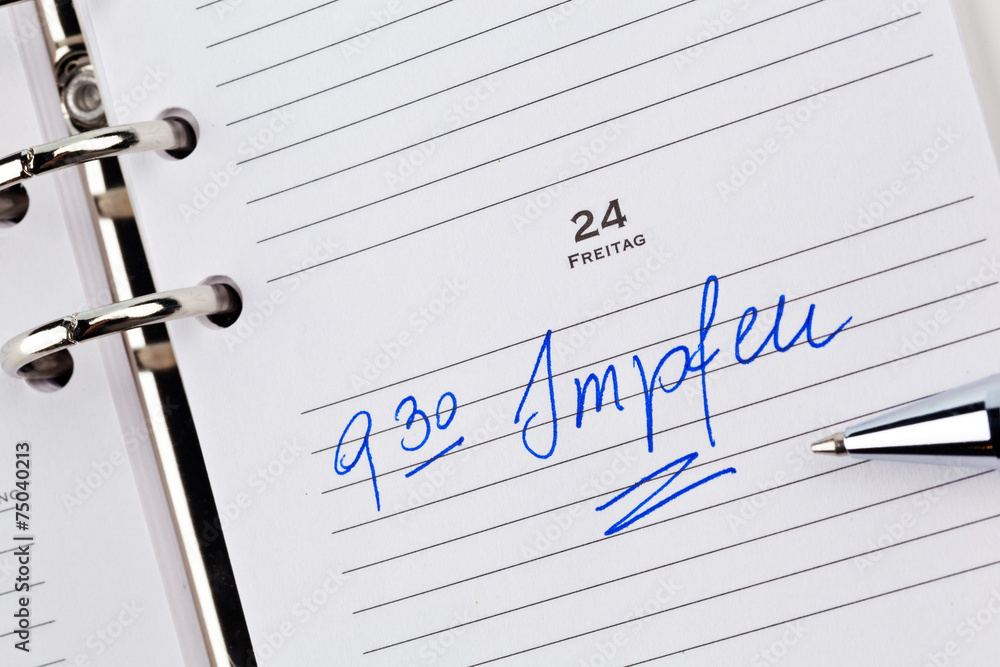 24
FREITAG
9 30 Impfen
Adobe Stock | #75040213